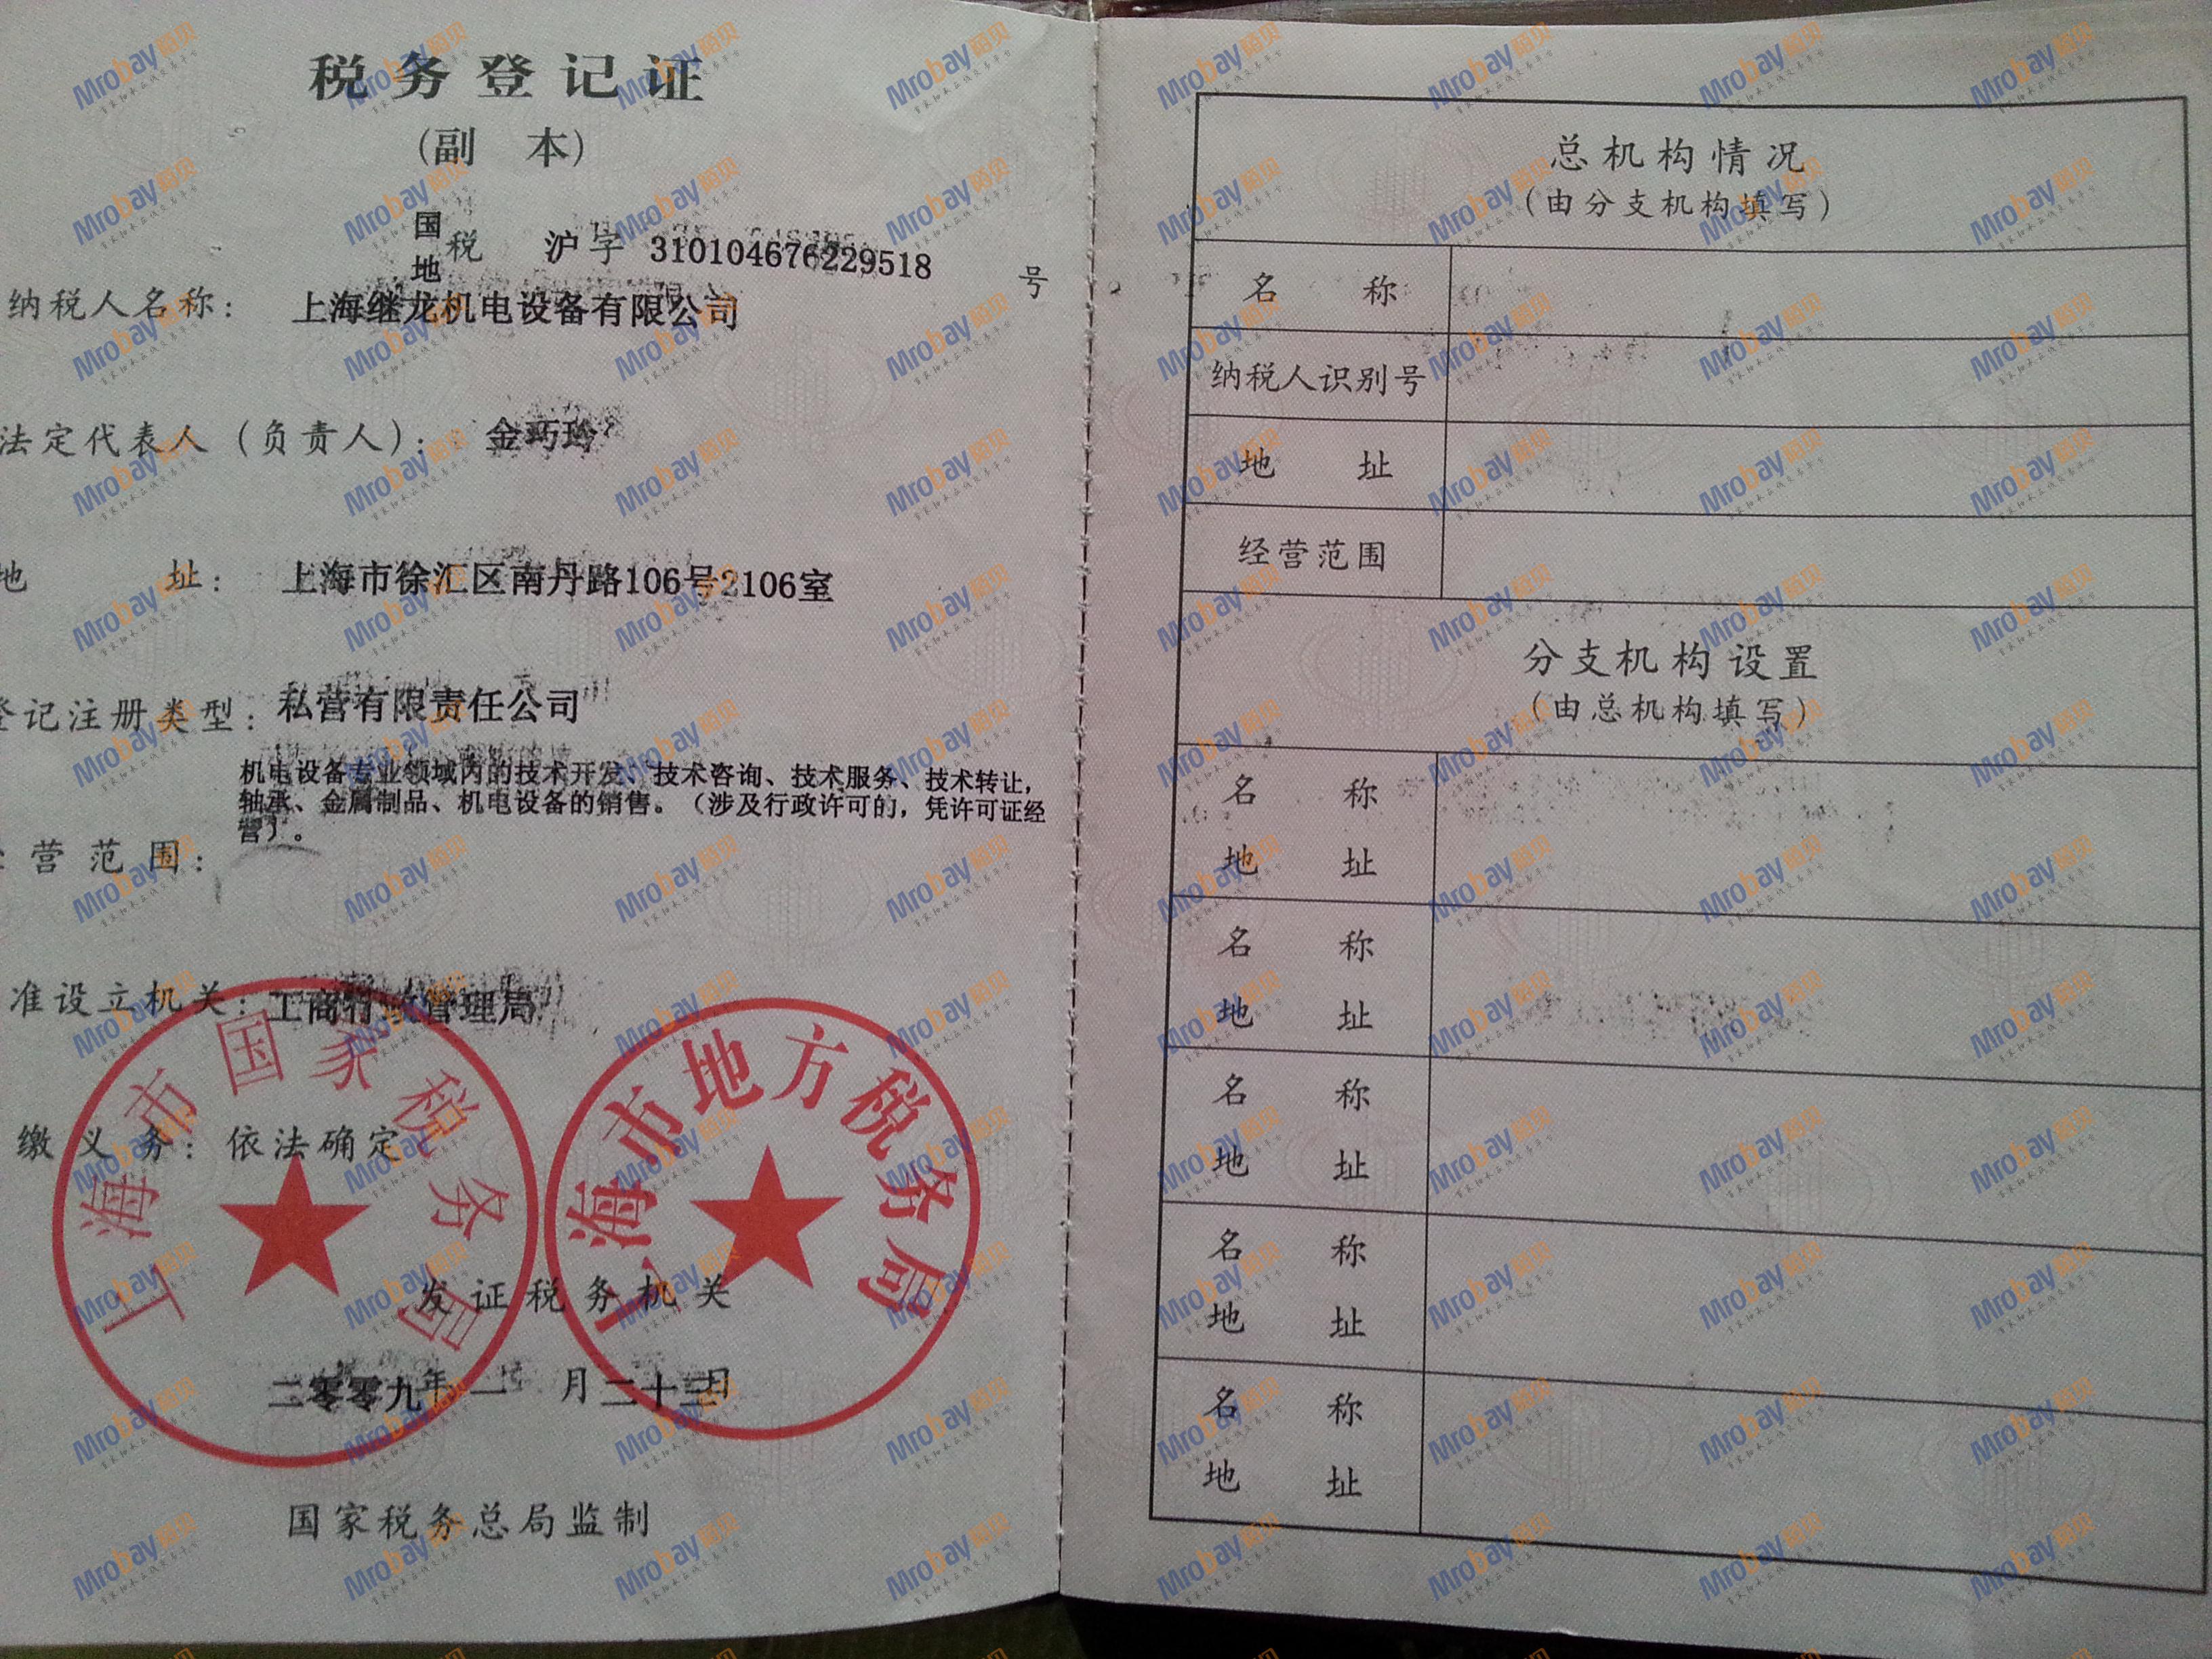 税务登记证
(副 本)
国
地 税 沪字 310104676229518 号
纳税人名称: 上海继龙机电设备有限公司
法定代表人（负责人）: 金巧玲
地 址: 上海市徐汇区南丹路106号2106室
登记注册类型: 私营有限责任公司
机电设备专业领域内的技术开发、技术咨询、技术服务、技术转让,
轴承、金属制品、机电设备的销售。（涉及行政许可的，凭许可证经
营）。
营范围:
准设立机关: 工商行政管理局
缴义务: 依法确定
上海市国家税务局
上海市地方税务局
发证税务机关
二零零九年一月二十三日
国家税务总局监制
总机构情况
（由分支机构填写）
名 称
纳税人识别号
地 址
经营范围
分支机构设置
（由总机构填写）
名 称
地 址
名 称
地 址
名 称
地 址
名 称
地 址
名 称
地 址
Mrobay陌贝